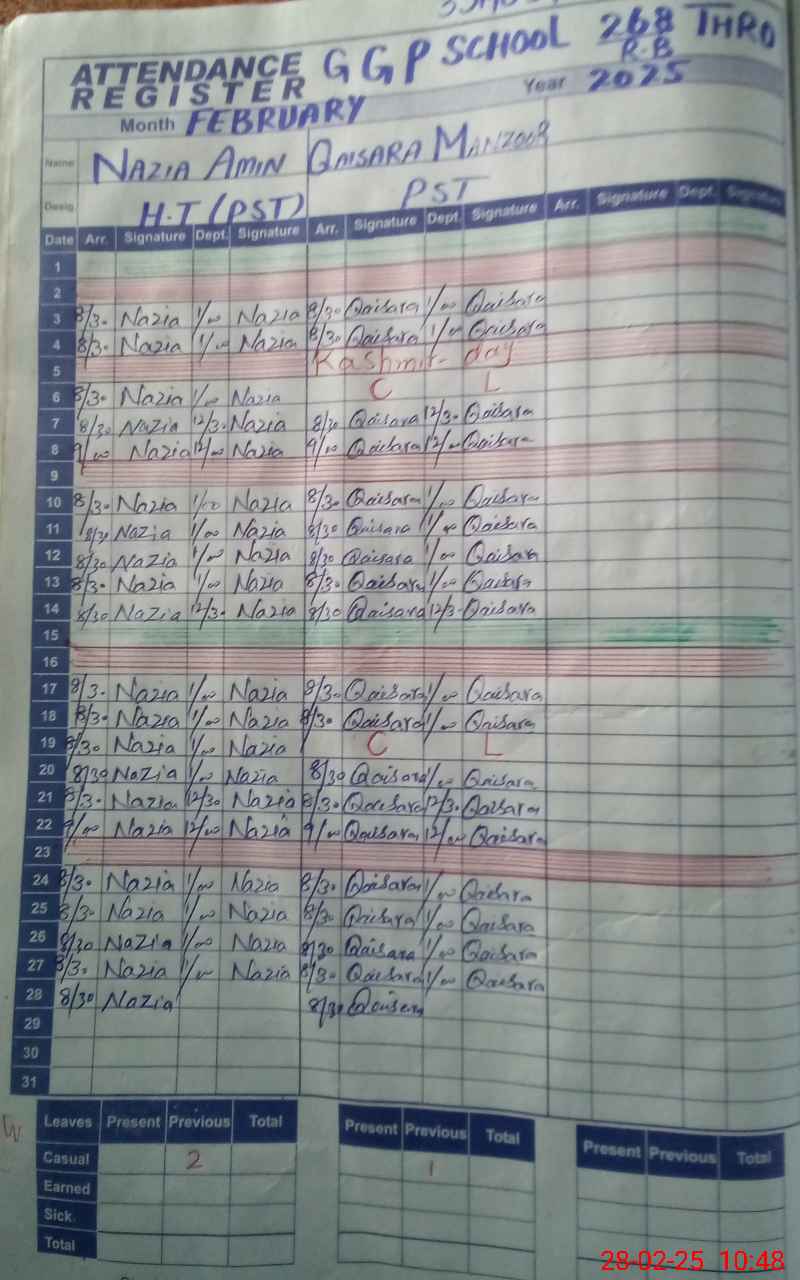 GGP SCHOOL 268 R.B THRO
ATTENDANCE REGISTER
Year 2025
Month FEBRUARY
Name NAZIA AMIN QAISARA MANZOOR
Desig. H.T (PST) PST
Date Arr. Signature Dept. Signature Arr. Signature Dept. Signature Arr. Signature Dept. Signature
1
2
3 8/30 Nazia 1/00 Nazia 8/30 Qaisara 1/00 Qaisara
4 8/30 Nazia 1/00 Nazia 8/30 Qaisara 1/00 Qaisara
5 Kashmir day
6 8/30 Nazia 1/00 Nazia C L
7 8/30 Nazia 12/30 Nazia 8/30 Qaisara 12/30 Qaisara
8 9/00 Nazia 12/00 Nazia 9/00 Qaisara 12/00 Qaisara
9
10 8/30 Nazia 1/00 Nazia 8/30 Qaisara 1/00 Qaisara
11 8/30 Nazia 1/00 Nazia 8/30 Qaisara 1/00 Qaisara
12 8/30 Nazia 1/00 Nazia 8/30 Qaisara 1/00 Qaisara
13 8/30 Nazia 1/00 Nazia 8/30 Qaisara 1/00 Qaisara
14 8/30 Nazia 12/30 Nazia 8/30 Qaisara 12/30 Qaisara
15
16
17 8/30 Nazia 1/00 Nazia 8/30 Qaisara 1/00 Qaisara
18 8/30 Nazia 1/00 Nazia 8/30 Qaisara 1/00 Qaisara
19 8/30 Nazia 1/00 Nazia C L
20 8/30 Nazia 1/00 Nazia 8/30 Qaisara 1/00 Qaisara
21 8/30 Nazia 12/30 Nazia 8/30 Qaisara 12/30 Qaisara
22 9/00 Nazia 12/00 Nazia 9/00 Qaisara 12/00 Qaisara
23
24 8/30 Nazia 1/00 Nazia 8/30 Qaisara 1/00 Qaisara
25 8/30 Nazia 1/00 Nazia 8/30 Qaisara 1/00 Qaisara
26 8/30 Nazia 1/00 Nazia 8/30 Qaisara 1/00 Qaisara
27 8/30 Nazia 1/00 Nazia 8/30 Qaisara 1/00 Qaisara
28 8/30 Nazia 8/30 Qaisara
29
30
31
Leaves Present Previous Total Present Previous Total Present Previous Total
Casual 2 1
Earned
Sick.
Total
28-02-25 10:48